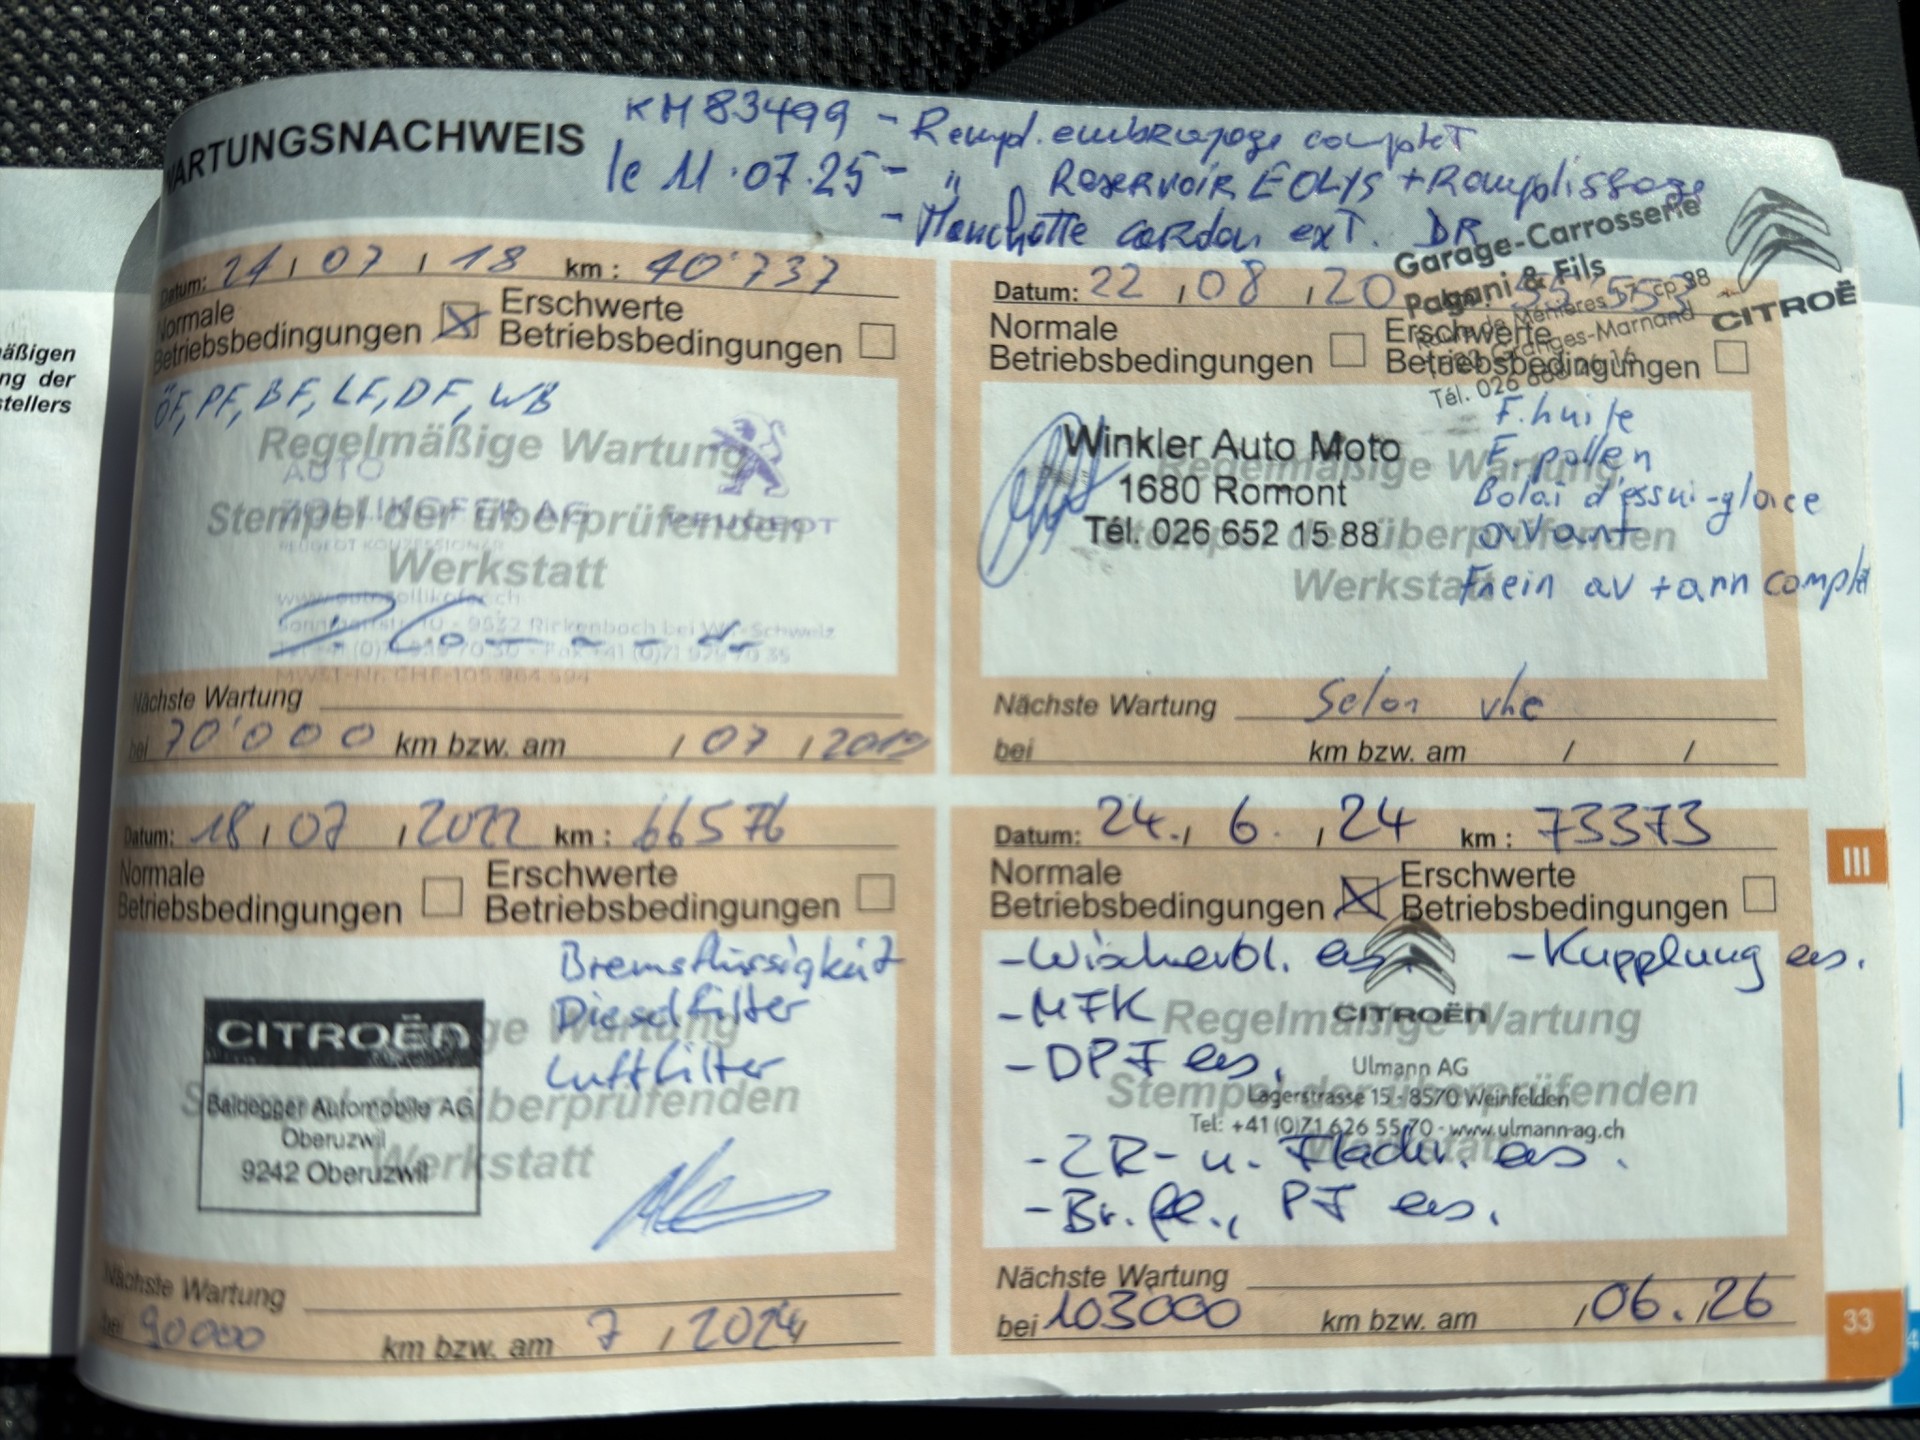 WARTUNGSNACHWEIS
KM 83499 - Rempl. embrayage complet
le 11.07.25 - " Reservoir EOLYS + Remplissage
- Manchette cardan ext. DR
Garage-Carrosserie
Pagani & Fils
CITROË
äßigen
ng der
stellers
Datum: 24 / 07 / 18 km : 40'737
Normale
Betriebsbedingungen
Erschwerte
Betriebsbedingungen
ÖF, PF, BF, LF, DF, WB
Regelmäßige Wartung
Stempel der überprüfenden
Werkstatt
AUTO
ZOLLIKOFER AG
PEUGEOT
PEUGEOT KONZESSIONÄR
www.autozollikofer.ch
9532 Rickenbach bei Wil - Schweiz
Nächste Wartung
bei 70'000 km bzw. am / 07 / 2019
Datum: 22 / 08 / 20
Normale
Betriebsbedingungen
Erschwerte
Betriebsbedingungen
Tél. 026
Winkler Auto Moto
1680 Romont
Tél. 026 652 15 88
Regelmäßige Wartung
Stempel der überprüfenden
Werkstatt
F. huile
F. pollen
Balai d'essui-glace
avant
Frein av + arr complet
Nächste Wartung Selon vhe
bei km bzw. am / /
Datum: 18 / 07 / 2022 km : 66576
Normale
Betriebsbedingungen
Erschwerte
Betriebsbedingungen
Bremsflüssigkeit
Dieselfilter
Luftfilter
CITROËN
Baldegger Automobile AG
Oberuzwil
9242 Oberuzwil
Nächste Wartung
bei 90000 km bzw. am 7 / 2024
Datum: 24. / 6. / 24 km : 73373
Normale
Betriebsbedingungen
Erschwerte
Betriebsbedingungen
- Wischerbl. ers. - Kupplung ers.
- MFK
- DPF ers.
CITROËN
Regelmäßige Wartung
Stempel der überprüfenden
Werkstatt
Ulmann AG
Lagerstrasse 15 - 8570 Weinfelden
Tel: +41 (0)71 626 55 70 - www.ulmann-ag.ch
- ZR- u. Flachr. ers.
- Br. fl., PF ers.
Nächste Wartung
bei 103000 km bzw. am / 06. / 26
III
33